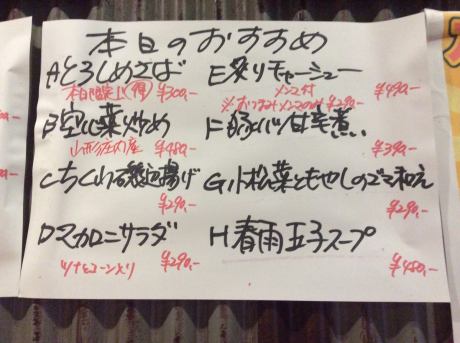 本日のおすすめ
Aとろしめさば
本日限定(得) ¥300,-
B空心菜炒め
山形庄内産 ¥480,-
Cちくわ磯辺揚げ
¥290,-
Dマカロニサラダ
ツナとコーン入り ¥290,-
E炙りチャーシュー
メンマ付 ¥490,-
※おつまみメンマのみ¥290,-
F豚バツ甘辛煮
¥390,-
G小松菜ともやしのゴマ和え
¥290,-
H春雨玉子スープ
¥480,-